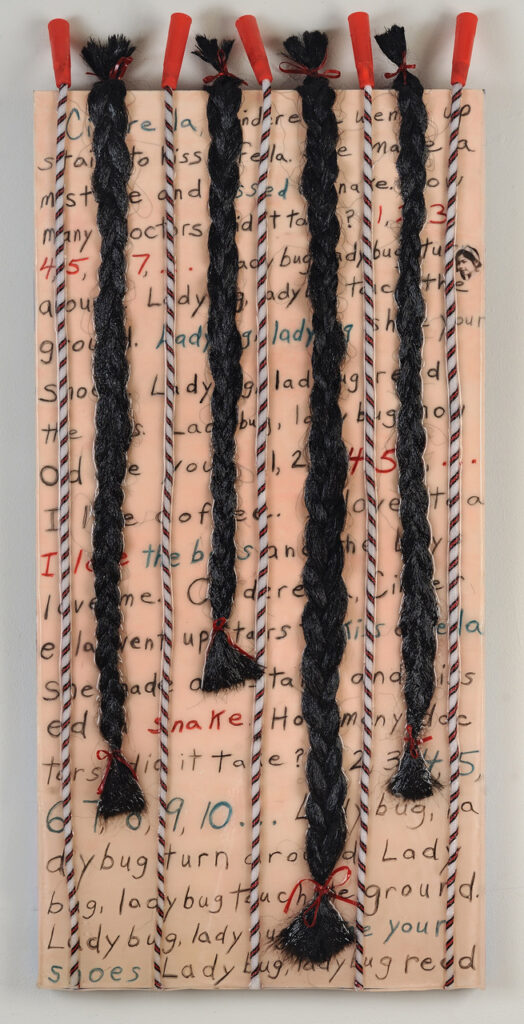 Cinderella, Cinderella went up
stairs to kiss a fella. She made a
mistake and kissed a snake. How
many doctors did it take? 1, 2, 3
4, 5, 6, 7, ... Ladybug, ladybug turn
around. Ladybug, ladybug touch the
ground. Ladybug, ladybug shine your
shoes. Ladybug, ladybug read
the news. Ladybug, ladybug how
Old are you? 1, 2, 3, 4, 5, ...
I like coffee.. I love tea
I love the boys and the boys
love me. Cinderella, Cinder
ella went upstairs to kiss a fella
She made a mistake and kiss
ed a snake. How many doc
tors did it take? 1, 2, 3, 4, 5,
6, 7, 8, 9, 10... Ladybug, a
dybug turn around. Lady
bug, ladybug touch the ground.
Ladybug, ladybug shine your
shoes Ladybug, ladybug read